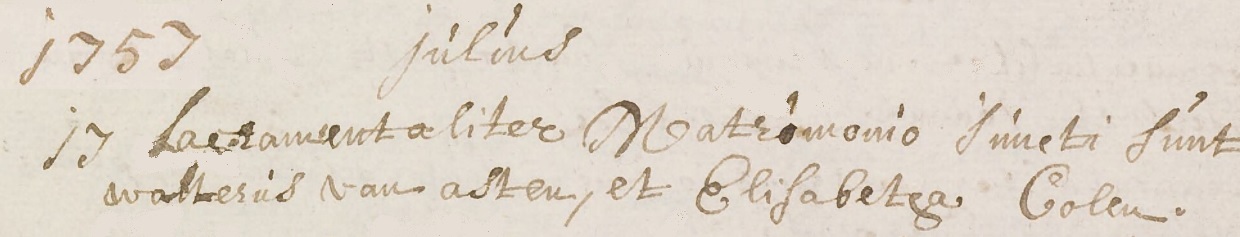 1757 julius
17 Sacramentaliter Matrimonio iuncti sunt
walterus van asten, et Elisabetha Colen.